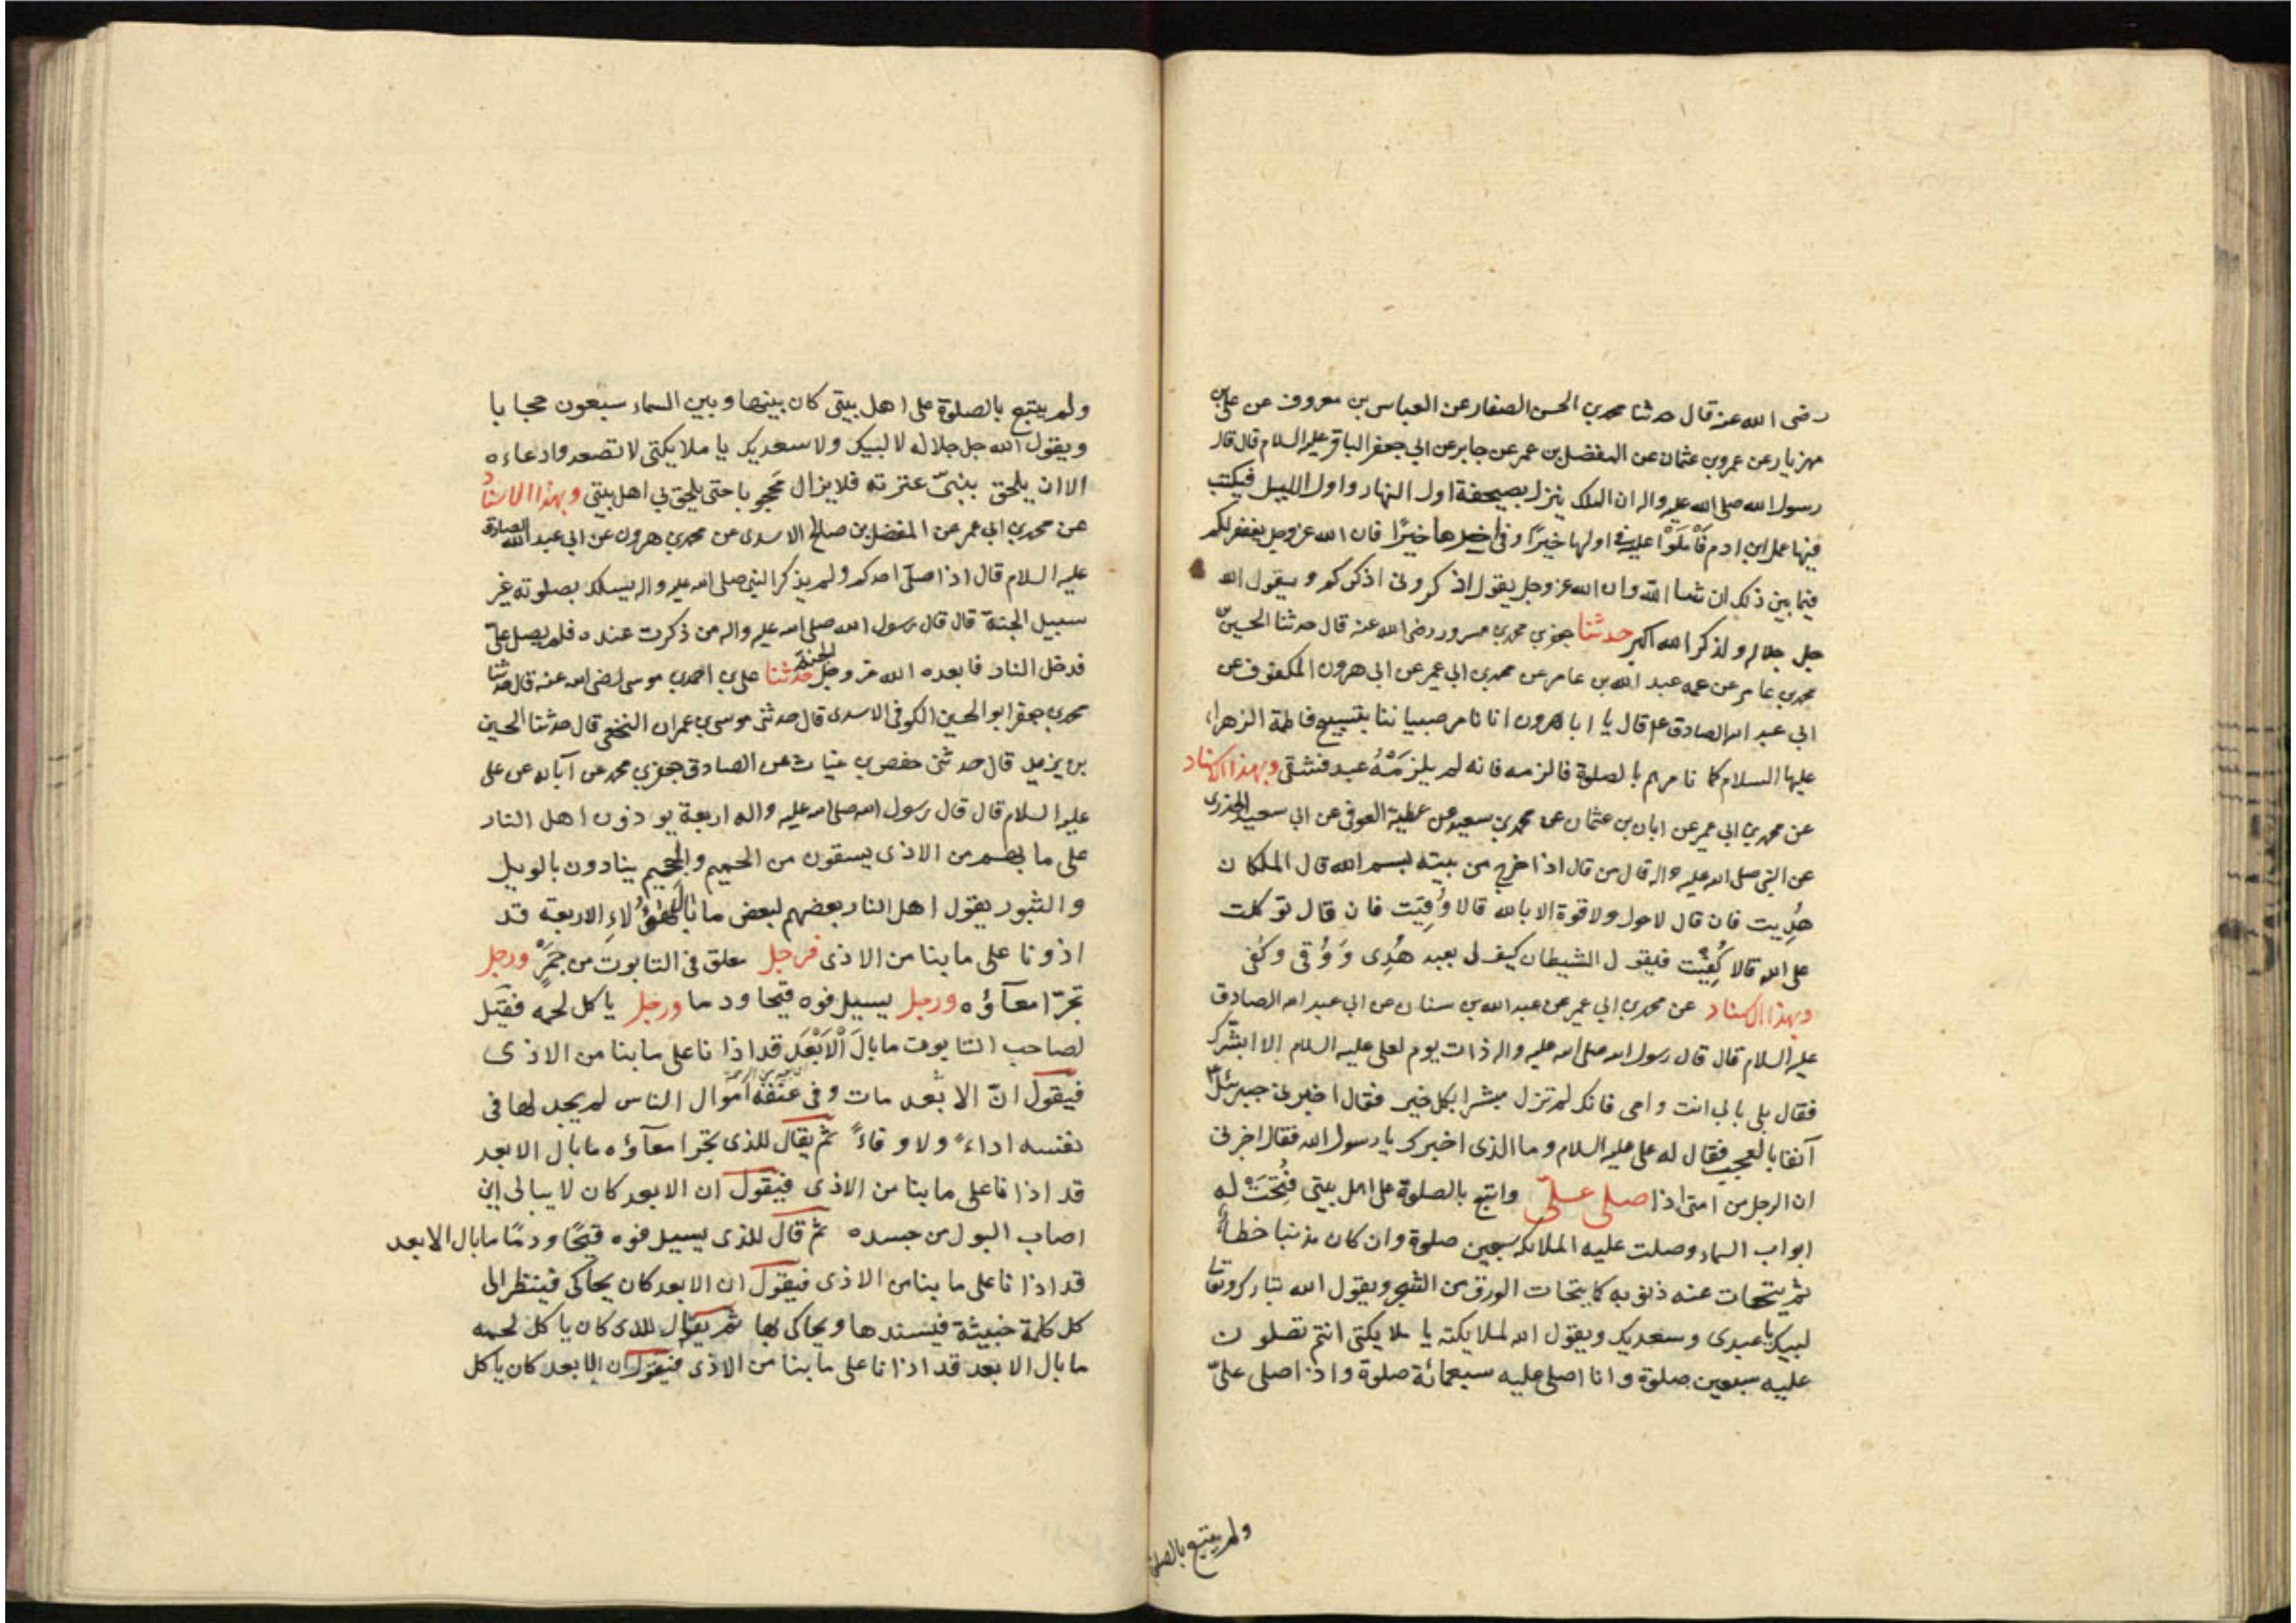 رضى الله عنه قال حدثنا محمد بن الحسن الصفار عن العباس بن معروف عن على بن
مهزيار عن عمرو بن عثمان عن المفضل بن عمر عن جابر عن ابى جعفر الباقر عليه السلام قال قال
رسول الله صلى الله عليه واله ان الملك ينزل بصحيفة اول النهار واول الليل فيكتب
فيها عمل ابن ادم فَاَمْلَوْا عليه فى اولها خيرًا وفى اخرها خيرًا فان الله عز وجل يغفر لكم
فيما بين ذلك ان شاء الله وان الله عز وجل يقول اذكرونى اذكركم ويقول الله
جل جلاله ولذكر الله اكبر حدثنا جعفر بن محمد بن مسرور رضى الله عنه قال حدثنا الحسين بن
محمد بن عامر عن عمه عبد الله بن عامر عن محمد بن ابى عمير عن ابى هرون المكفوف عن
ابى عبد الله الصادق ع قال يا ابا هرون انا نامر صبياننا بتسبيح فاطمة الزهراء
عليها السلام كما نامرهم بالصلوة فالزمه فانه لم يلزمْهُ عبد فشقى وبهذا الاسناد
عن محمد بن ابى عمير عن ابان بن عثمان عن محمد بن سعيد عن عطية العوفى عن ابى سعيد الخدرى
عن النبى صلى الله عليه واله قال من قال اذا خرج من بيته بسم الله قال الملكان
هُدِيت فان قال لاحول ولا قوة الا بالله قالا وُقِيَت فان قال توكلت
على الله قالا كُفِيْت فيقول الشيطان كيف لى بعبد هُدِى وَ وُقى وكُفى
وبهذا الاسناد عن محمد بن ابى عمير عن عبد الله بن سنان عن ابى عبد الله الصادق
عليه السلام قال قال رسول الله صلى الله عليه واله ذات يوم لعلى عليه السلام الا ابشّرك
فقال بلى بابى انت وامى فانك لم تزل مبشرا بكل خير فقال اخبرنى جبرئل
آنفا بالعجب فقال له على عليه السلام وما الذى اخبرك يا رسول الله فقال اخبرنى
ان الرجل من امتى اذا صلى علىّ واتبع بالصلوة على اهل بيتى فُتِحَتْ له
ابواب السماء وصلت عليه الملائكة سبعين صلوة وان كان مذنبا خطاءً
ثم يتحات عنه ذنوبه كما يتحات الورق من الشجر ويقول الله تبارك وتعا
لبيك يا عبدى وسعديك ويقول الله لملايكته يا ملايكتى انتم تصلون
عليه سبعين صلوة وانا اصلى عليه سبعمائة صلوة واذا صلى علىّ
ولم يتبع بالصلوة
ولم يتبع بالصلوة على اهل بيتى كان بينها وبين السماء سبعون حجابا
ويقول الله جل جلاله لا لبيك ولا سعديك يا ملايكتى لا تصعدوا دعاءه
الا ان يلحق بنبىّ عترته فلا يزال مَحجوبا حتى يلحق بى اهل بيتى وبهذا الاسناد
عن محمد بن ابى عمر عن المفضل بن صالح الاسدى عن محمد بن هرون عن ابى عبد الله الصادق
عليه السلام قال اذا صلّى احدكم ولم يذكر النبى صلى الله عليه واله يسلك بصلوته غير
سبيل الجنة قال قال رسول الله صلى الله عليه واله من ذكرت عنده فلم يصل علىّ
فدخل النار فابعده الله عز وجل الجنة حدثنا على بن احمد بن موسى رضى الله عنه قال حدثنا
محمد بن جعفر ابو الحسين الكوفى الاسدى قال حدثنى موسى بن عمران النخعى قال حدثنا الحسين
بن يزيد قال حدثنى حفص بن غياث عن الصادق جعفر بن محمد عن آبائه عن على
عليه السلام قال قال رسول الله صلى الله عليه واله اربعة يوذون اهل النار
على ما بهم من الاذى يسقون من الحميم والجحيم ينادون بالويل
والثبور يقول اهل النار بعضهم لبعض ما بال هؤلاءِ الاربعة قد
اذونا على ما بنا من الاذى فرجل معلق فى التابوت من جَمَرٍ ورجل
تجرّ امعآؤه ورجل يسيل فوه قيحا ودما ورجل ياكل لحمه فقيل
لصاحب التابوت ما بالَ اْلاَبْعَد قد اذانا على ما بنا من الاذى
فيقول انّ الابعد مات وفى عنقه اموال الناس لم يجد لها فى
نفسه اداءً ولا وفاءً ثم يقال للذى تجر امعآؤه ما بال الابعد
قد اذانا على ما بنا من الاذى فيقول ان الابعد كان لا يبالى اين
اصاب البول من جسده ثم قال للذى يسيل فوه قيحًا ودمًا ما بال الابعد
قد اذانا على ما بنا من الاذى فيقول ان الابعد كان يحاكى فينظر الى
كل كلمة خبيثة فيسندها ويحاكى بها ثم يقال للذى كان ياكل لحمه
ما بال الابعد قد اذانا على ما بنا من الاذى فيقول ان الابعد كان ياكل